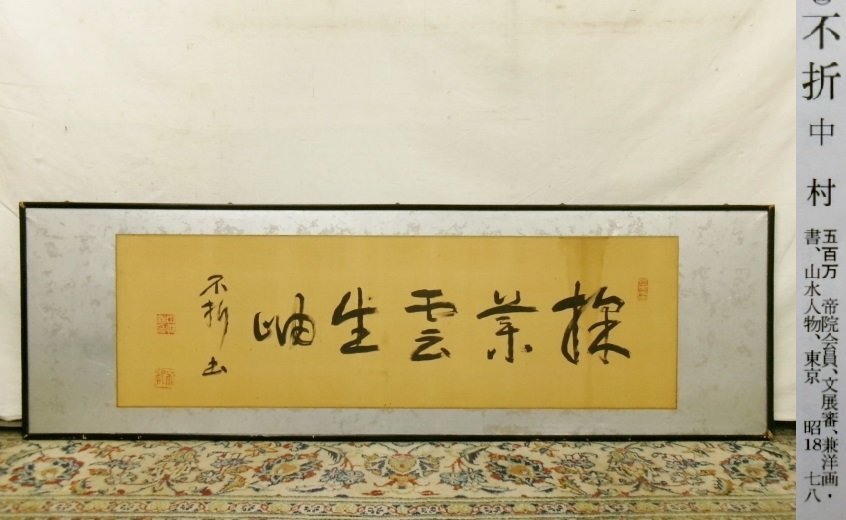 採薬雲生岫
不折書
不折 中村
五百万 帝院会員、文展審、兼洋画・
書、山水人物、東京 昭18 七八